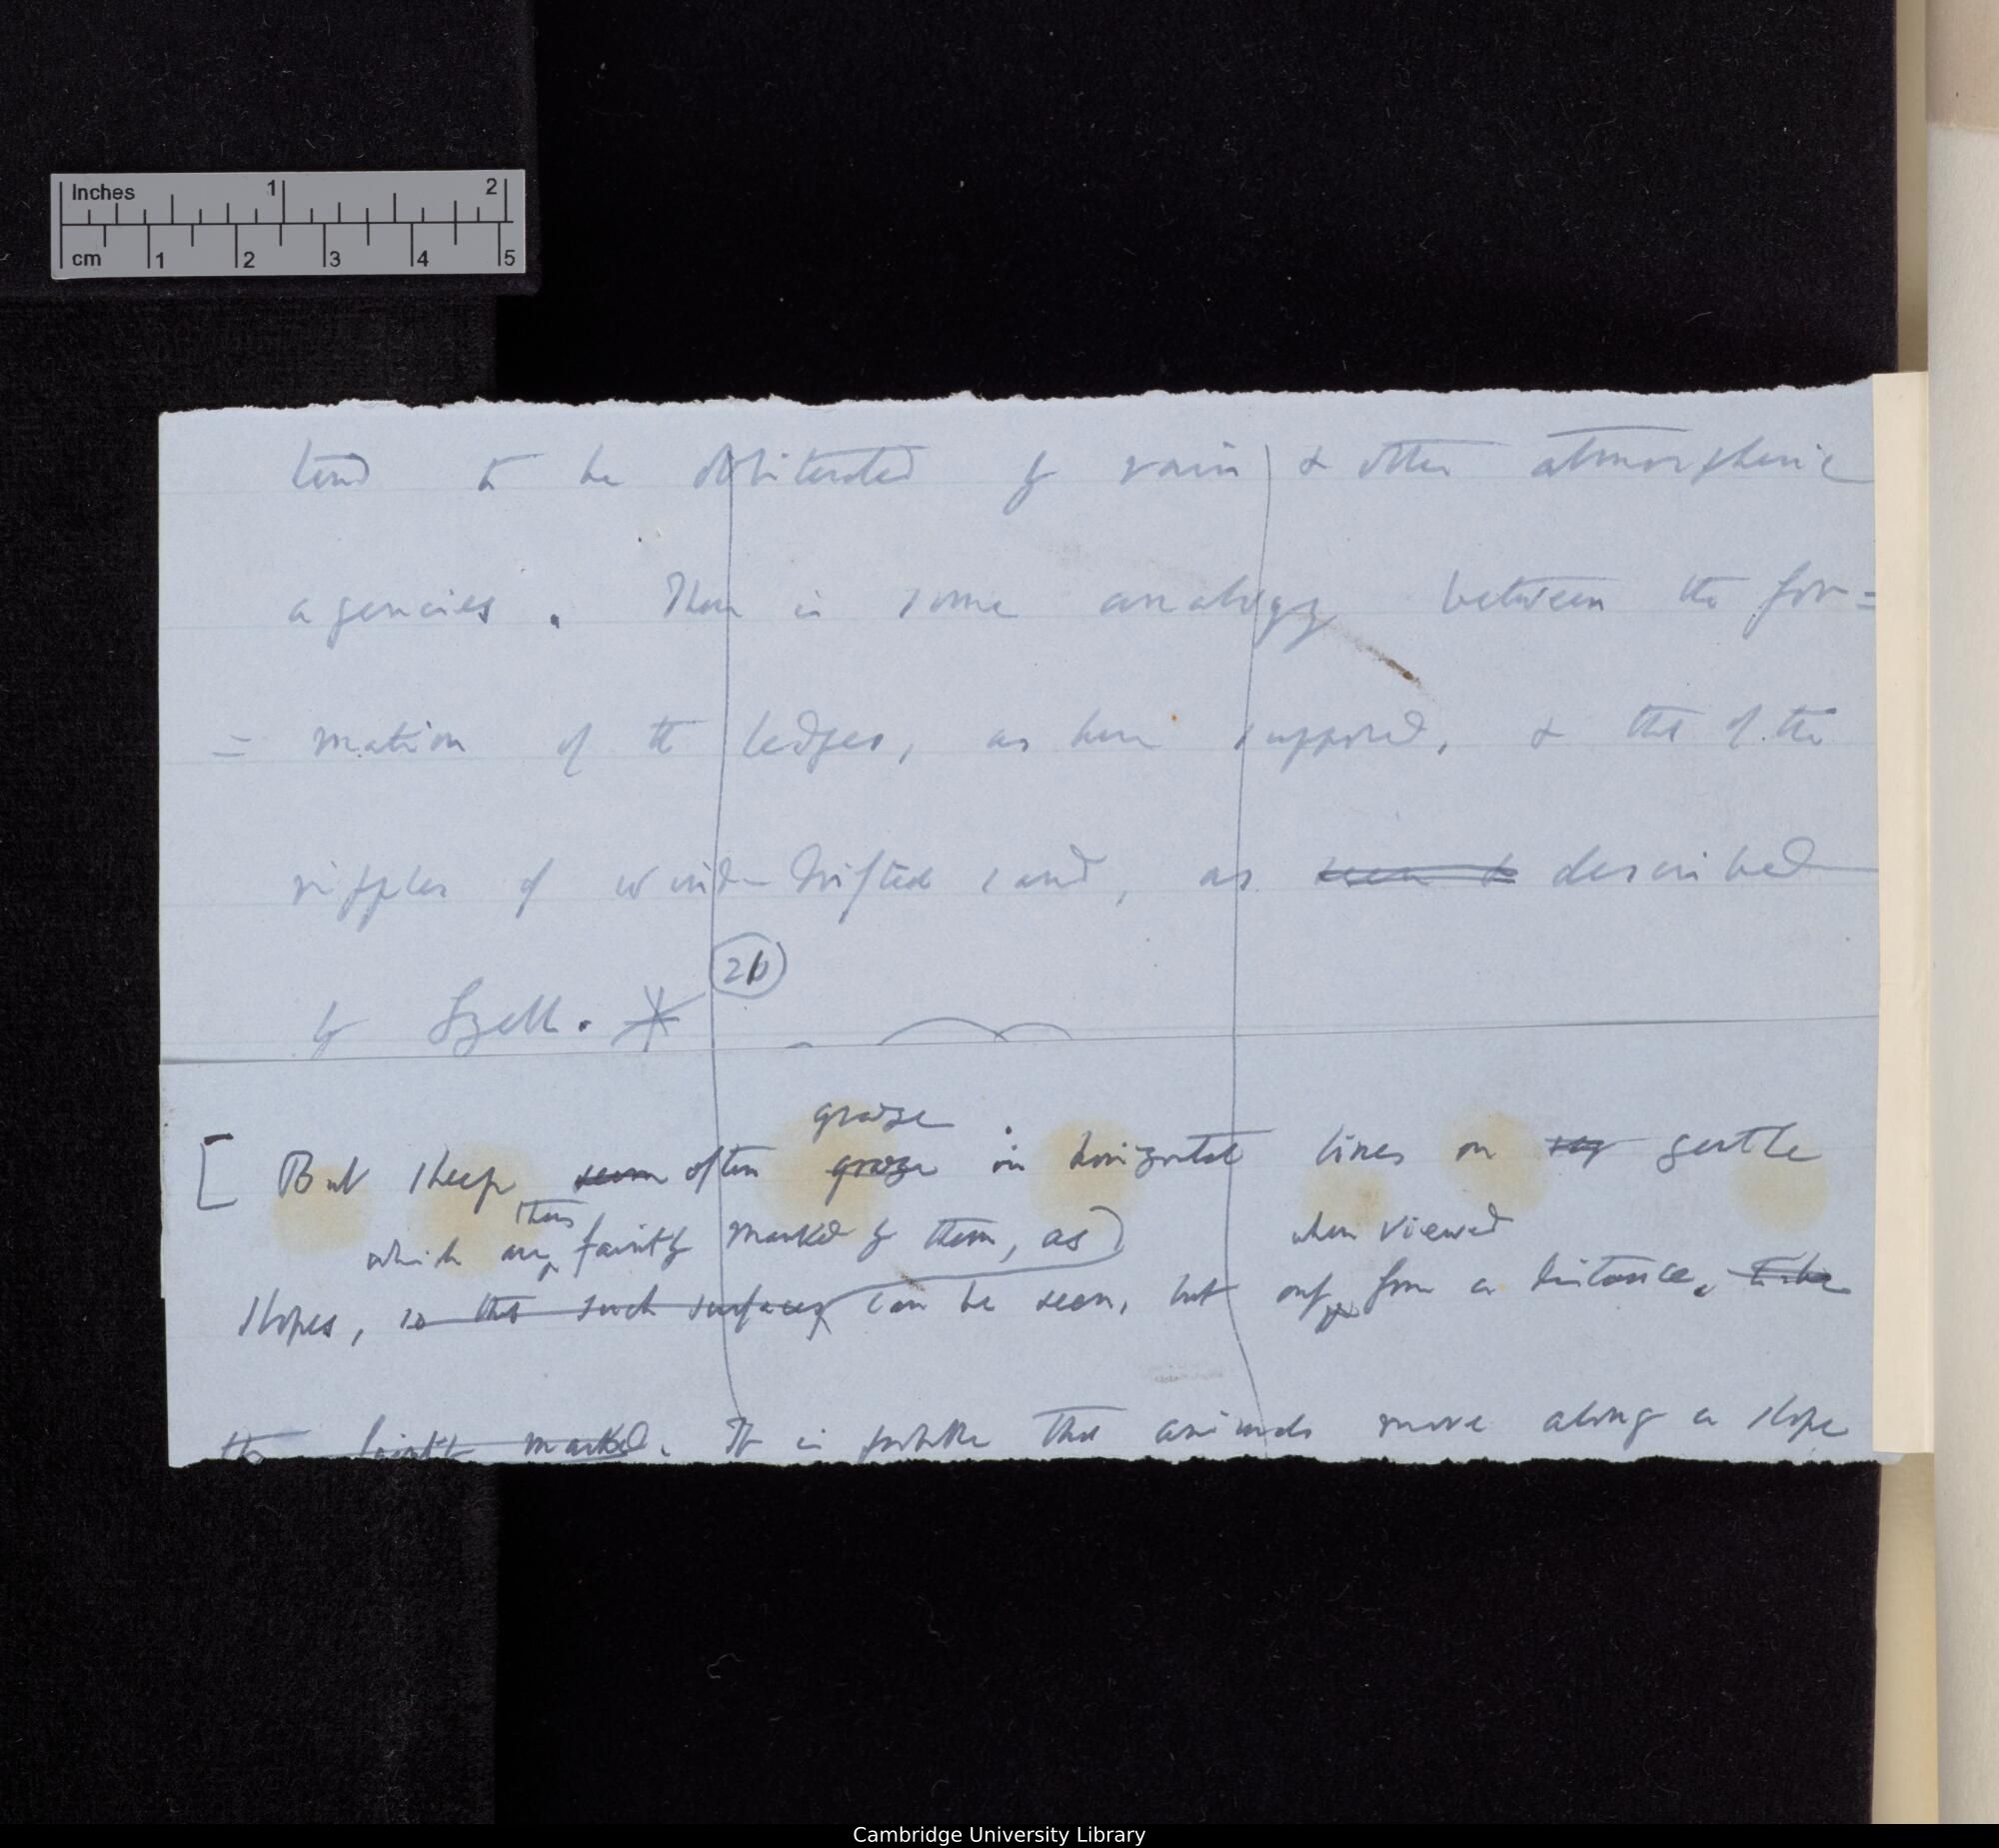 Inches 1 2
cm 1 2 3 4 5
tend to be obliterated by rain & other atmospheric
agencies. There is some analogy between the for=
= mation of the ledges, as here supposed, & that of the
ripples of wind-drifted sand, as described
by Lyell. *
21
graze
[ But sheep seem often graze in horizontal lines on gentle
thus
which are faintly marked by them, as
when viewed
slopes, so that such surfaces can be seen, but only from a distance, to be
thus faintly marked. It is probable that animals move along a slope
Cambridge University Library